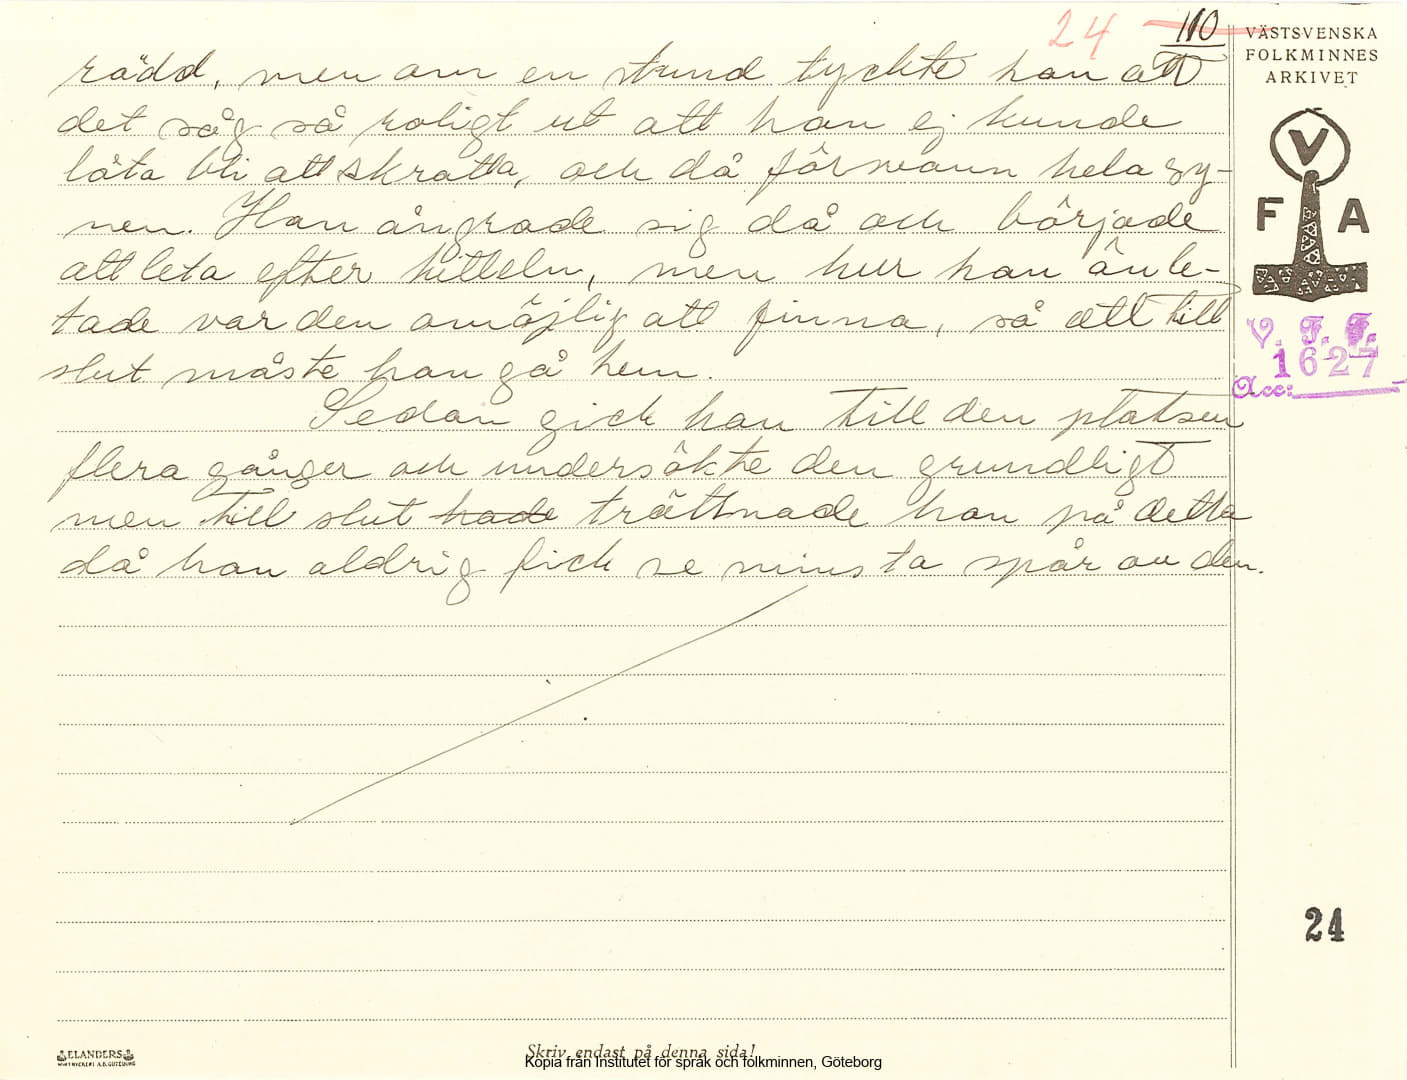 24 110
rädd, men om en stund tyckte han att
det såg så roligt ut att han ej kunde
låta bli att skratta, och då försvann hela sy-
nen. Han ångrade sig då och började
att leta efter kitteln, men hur han än le-
tade var den omöjlig att finna, så att till
slut måste han gå hem.
Sedan gick han till den platsen
flera gånger och undersökte den grundligt
men till slut hade tröttnade han på detta
då han aldrig fick se minsta spår av den.
VÄSTSVENSKA
FOLKMINNES
ARKIVET
V
F A
V. F. F.
1627
Acc:
24
ELANDERS
Skriv endast på denna sida!
Kopia från Institutet för språk och folkminnen, Göteborg